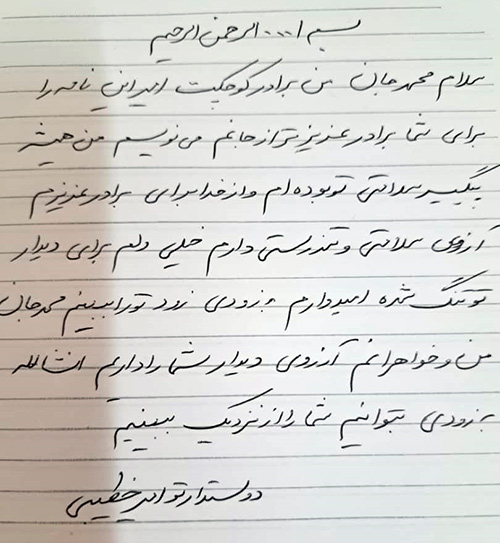 بسم ا... الرحمن الرحیم
سلام محمد جان من برادر کوچکت امیر این نامه را
برای شما برادر عزیزتر از جانم می نویسم من همیشه
پیگیر سلامتی تو بوده ام و از خدا برای برادر عزیزم
آرزوی سلامتی و تندرستی دارم خیلی دلم برای دیدار
تو تنگ شده امیدوارم به زودی زود تو را ببینم محمد جان
من و خواهرانم آرزوی دیدار شما را داریم انشالله
به زودی بتوانیم شما را از نزدیک ببینیم
دوستدار تو امیر خطیبی